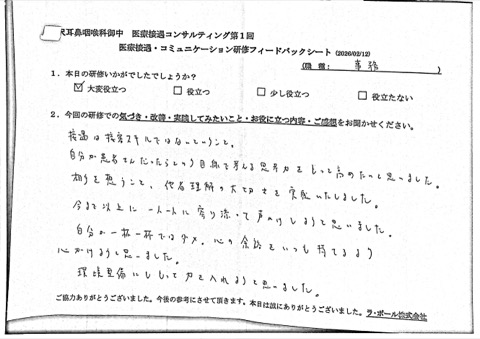 沢耳鼻咽喉科御中 医療接遇コンサルティング第1回
医療接遇・コミュニケーション研修フィードバックシート (2026/02/12)
(職種: 事務 )
1.本日の研修いかがでしたでしょうか?
☑ 大変役立つ □ 役立つ □ 少し役立つ □ 役立たない
2.今回の研修での気づき・改善・実践してみたいこと・お役に立つ内容・ご感想をお聞かせください。
接遇は接客スキルではないということ。
自分が患者さんだったらという目線で考える思考力をもっと高めたいと思いました。
相手を思うこと、他者理解の大切さを実感いたしました。
今まで以上に一人一人に寄り添って声かけしようと思いました。
自分が一杯一杯ではダメ、心の余裕をいつも持てるよう
心がけようと思いました。
環境整備にももっと力を入れようと思いました。
ご協力ありがとうございました。今後の参考にさせて頂きます。本日は誠にありがとうございました。ラ・ポール株式会社